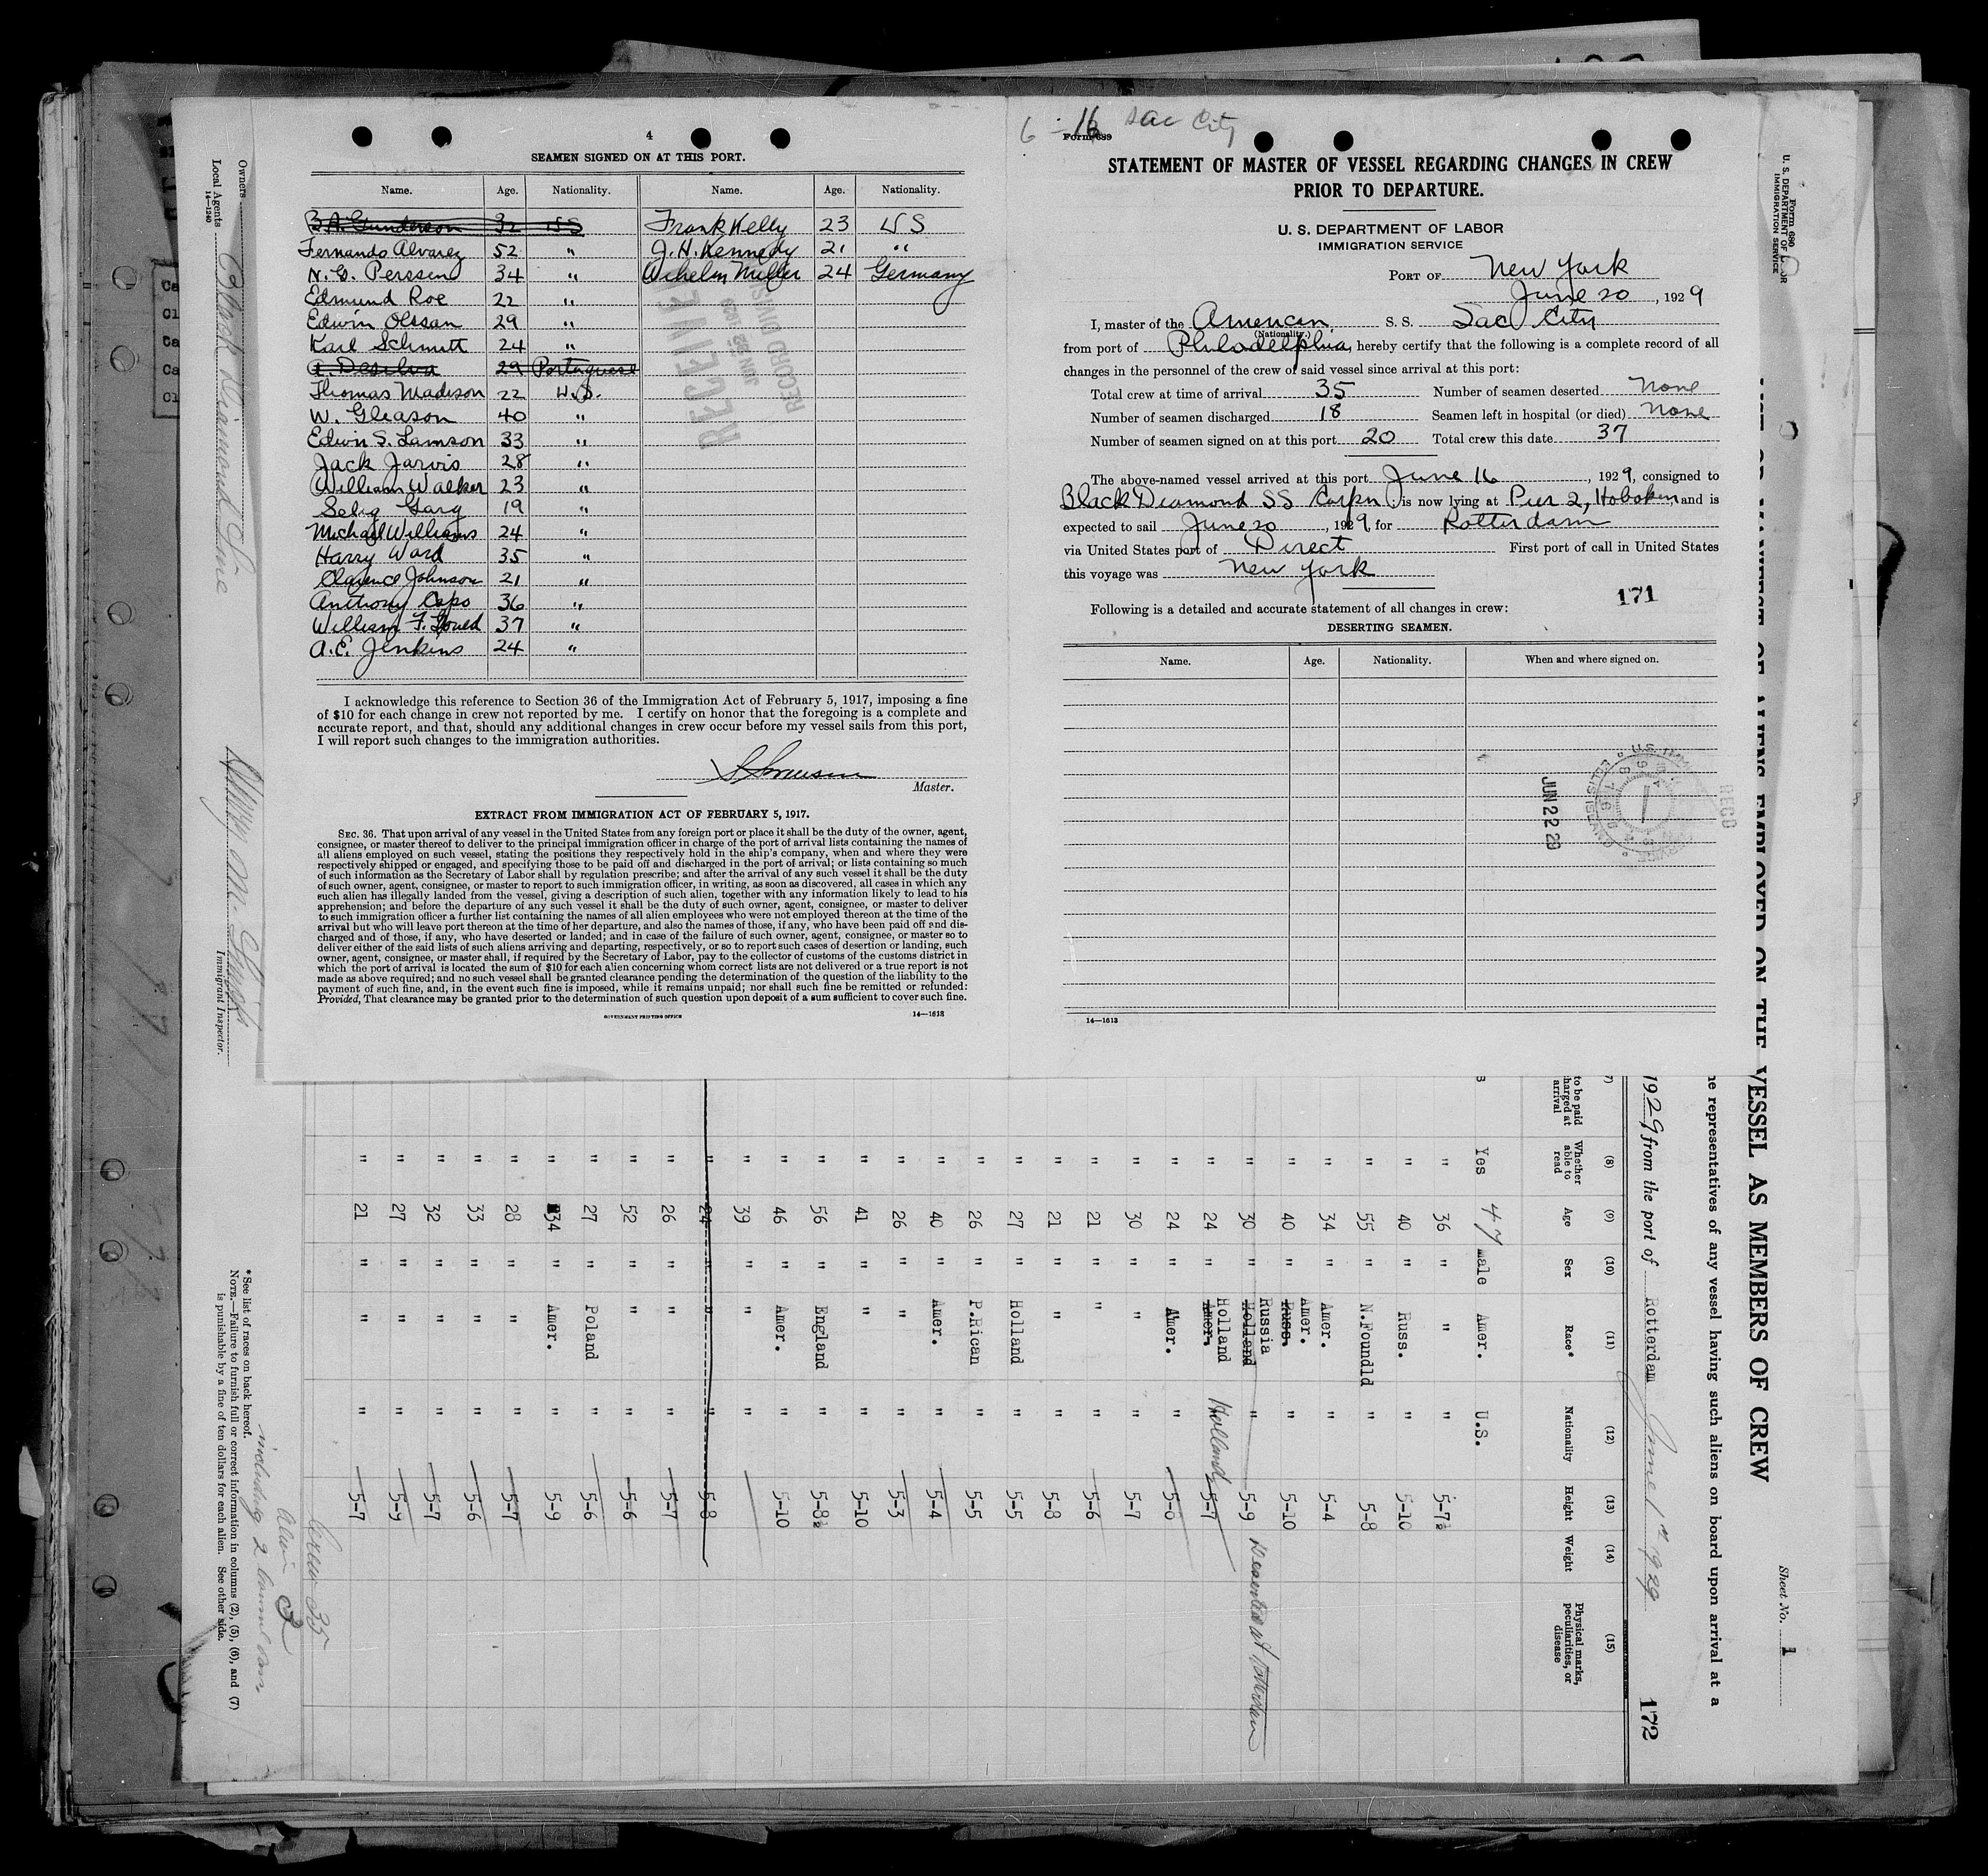 4
SEAMEN SIGNED ON AT THIS PORT.
Name. Age. Nationality. Name. Age. Nationality.
B.A. Gunderson 32 US Frank Kelly 23 US
Fernando Alvarez 52 " J.H. Kennedy 21 "
N. G. Perssen 34 " Wilhelm Miller 24 Germany
Edmund Roe 22 "
Edwin Olssan 29 "
Karl Schmitt 24 "
A. Desilva 29 Portuguese
Thomas Madison 22 U.S.
W. Gleason 40 "
Edwin S. Lamson 33 "
Jack Jarvis 28 "
William Walker 23 "
Selig Garg 19 "
Michael Williams 24 "
Harry Ward 35 "
Clarence Johnson 21 "
Anthony Capo 36 "
William F. Gould 37 "
A.E. Jenkins 24 "
RECEIVED
JUN 22 1929
RECORD DIVISION
I acknowledge this reference to Section 36 of the Immigration Act of February 5, 1917, imposing a fine
of $10 for each change in crew not reported by me. I certify on honor that the foregoing is a complete and
accurate report, and that, should any additional changes in crew occur before my vessel sails from this port,
I will report such changes to the immigration authorities.
Master.
EXTRACT FROM IMMIGRATION ACT OF FEBRUARY 5, 1917.
SEC. 36. That upon arrival of any vessel in the United States from any foreign port or place it shall be the duty of the owner, agent,
consignee, or master thereof to deliver to the principal immigration officer in charge of the port of arrival lists containing the names of
all aliens employed on such vessel, stating the positions they respectively hold in the ship's company, when and where they were
respectively shipped or engaged, and specifying those to be paid off and discharged in the port of arrival; or lists containing so much
of such information as the Secretary of Labor shall by regulation prescribe; and after the arrival of any such vessel it shall be the duty
of such owner, agent, consignee, or master to report to such immigration officer, in writing, as soon as discovered, all cases in which any
such alien has illegally landed from the vessel, giving a description of such alien, together with any information likely to lead to his
apprehension; and before the departure of any such vessel it shall be the duty of such owner, agent, consignee, or master to deliver
to such immigration officer a further list containing the names of all alien employees who were not employed thereon at the time of the
arrival but who will leave port thereon at the time of her departure, and also the names of those, if any, who have been paid off and dis-
charged and of those, if any, who have deserted or landed; and in case of the failure of such owner, agent, consignee, or master so to
deliver either of the said lists of such aliens arriving and departing, respectively, or so to report such cases of desertion or landing, such
owner, agent, consignee, or master shall, if required by the Secretary of Labor, pay to the collector of customs of the customs district in
which the port of arrival is located the sum of $10 for each alien concerning whom correct lists are not delivered or a true report is not
made as above required; and no such vessel shall be granted clearance pending the determination of the question of the liability to the
payment of such fine, and, in the event such fine is imposed, while it remains unpaid; nor shall such fine be remitted or refunded:
Provided, That clearance may be granted prior to the determination of such question upon deposit of a sum sufficient to cover such fine.
GOVERNMENT PRINTING OFFICE 14—1613
6 - 16 Sac City
Form 689
STATEMENT OF MASTER OF VESSEL REGARDING CHANGES IN CREW
PRIOR TO DEPARTURE.
U. S. DEPARTMENT OF LABOR
IMMIGRATION SERVICE
PORT OF New York
June 20, 1929
I, master of the American S. S. Sac City
(Nationality.)
from port of Philadelphia, hereby certify that the following is a complete record of all
changes in the personnel of the crew of said vessel since arrival at this port:
Total crew at time of arrival 35 Number of seamen deserted None
Number of seamen discharged 18 Seamen left in hospital (or died) None
Number of seamen signed on at this port 20 Total crew this date 37
The above-named vessel arrived at this port June 16, 1929, consigned to
Black Diamond SS Corpn, is now lying at Pier 2, Hoboken and is
expected to sail June 20, 1929, for Rotterdam
via United States port of Direct First port of call in United States
this voyage was New York
171
Following is a detailed and accurate statement of all changes in crew:
DESERTING SEAMEN.
Name. Age. Nationality. When and where signed on.
JUN 22 29
RECD
14—1613
Form 680
U. S. DEPARTMENT OF LABOR
IMMIGRATION SERVICE
Sheet No. 1
VESSEL AS MEMBERS OF CREW
EMPLOYED ON THE
representatives of any vessel having such aliens on board upon arrival at a
1929 from the port of Rotterdam June 1st 1929
172
(7) (8) (9) (10) (11) (12) (13) (14) (15)
to be paid
arrival
Whether able to read Age Sex Race* Nationality Height Weight Physical marks, peculiarities, or disease
Yes 47 male Amer. U.S.
" 36 " " " 5-7½
" 40 " Russ. " 5-10
" 55 " N.Foundld " 5-8
" 34 " Amer. " 5-4
" 40 " Russ. Amer. " 5-10
" 30 " Holland Russia " 5-9 Deserted at Rotterdam
" 24 " Amer. Holland Holland 5-7
" 24 " Amer. " 5-8
" 30 " " " 5-7
" 21 " " " 5-6
" 21 " " " 5-8
" 27 " Holland " 5-5
" 26 " P.Rican " 5-5
" 40 " Amer. " 5-4
" 26 " " " 5-3
" 41 " " " 5-10
" 56 " England " 5-8½
" 46 " Amer. " 5-10
" 39 " " "
" 24 " " " 5-8
" 26 " " " 5-7
" 52 " " " 5-6
" 27 " Poland " 5-6
" 34 " Amer. " 5-9
" 28 " " " 5-7
" 33 " " " 5-6
" 32 " " " 5-7
" 27 " " " 5-9
" 21 " " " 5-7
Crew 35
*See list of races on back hereof.
NOTE.—Failure to furnish full or correct information in columns (2), (5), (6), and (7)
is punishable by a fine of ten dollars for each alien. See other side.
Owners
Local Agents Black Diamond Line
14—1240
Immigrant Inspector.